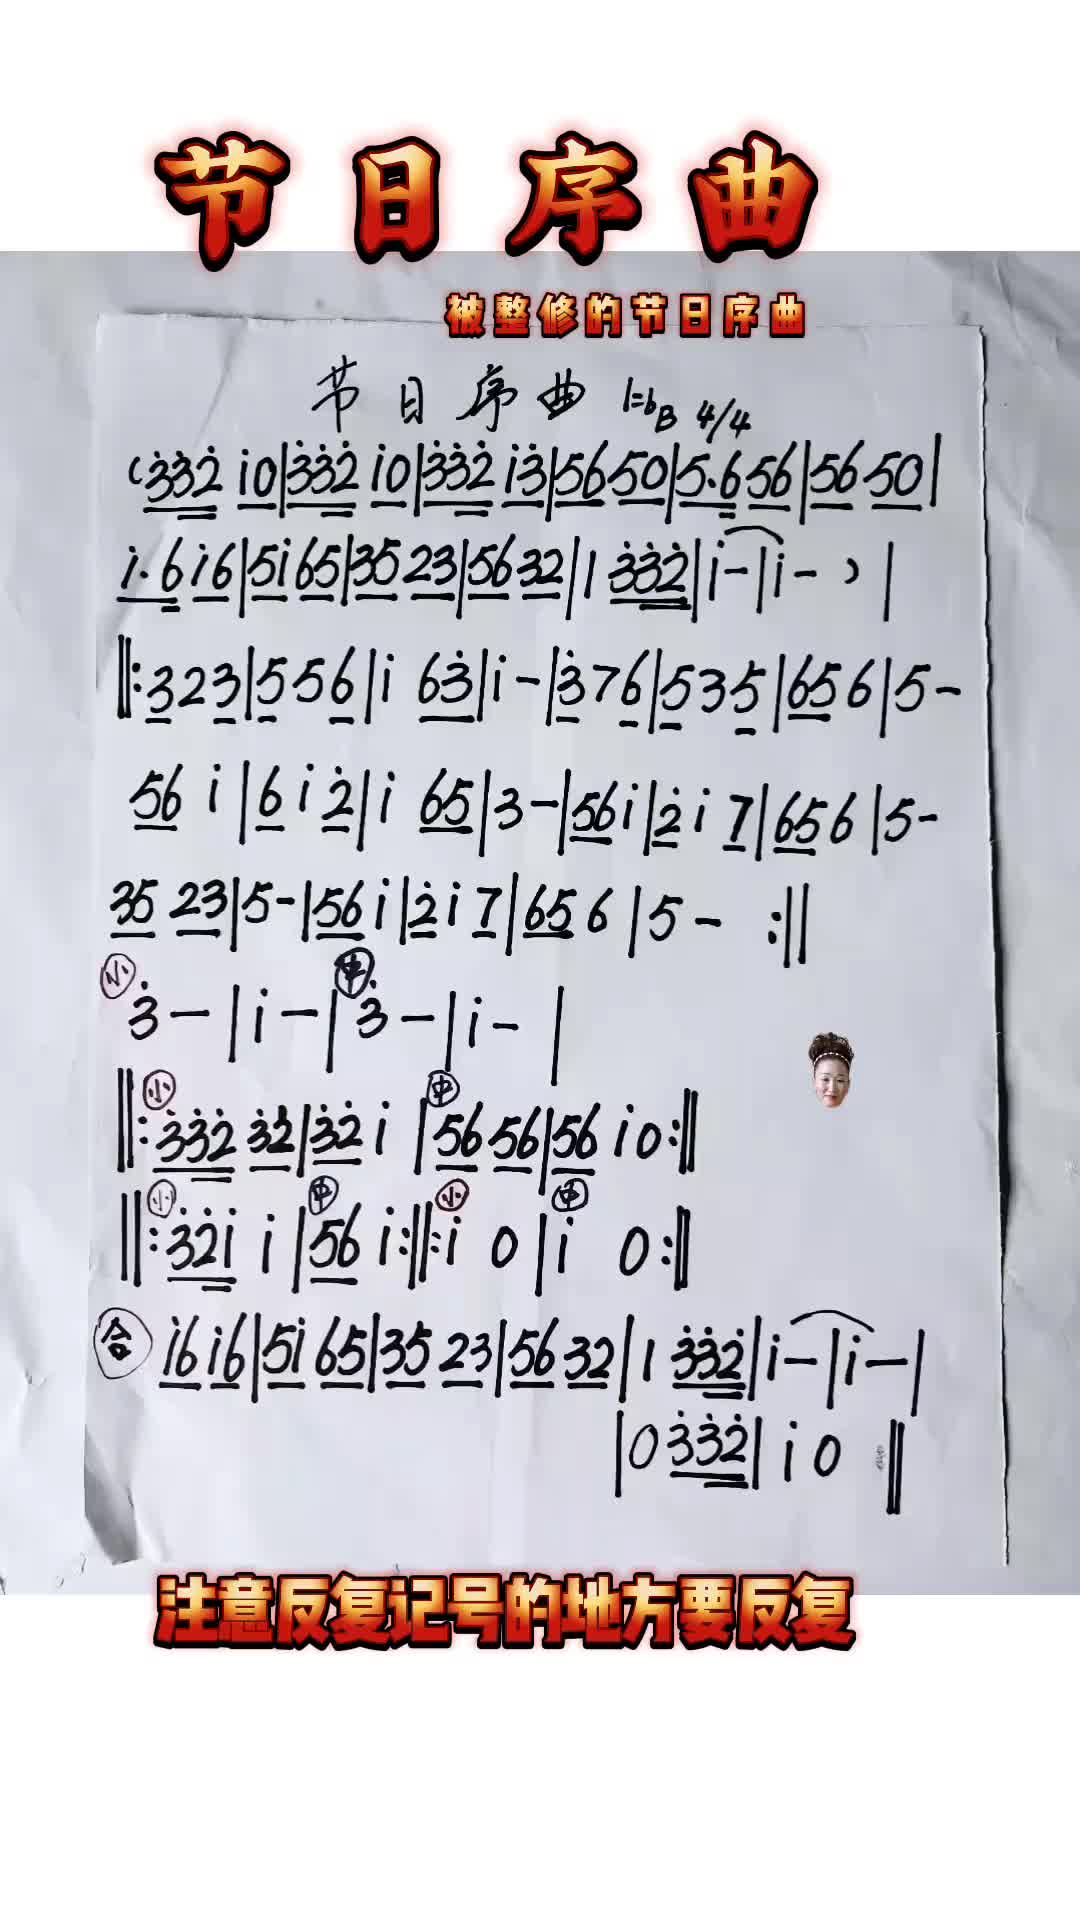 节日序曲
被整修的节日序曲
节日序曲 1=bB 4/4
(3̇3̇2̇ i0|3̇3̇2̇ i0|3̇3̇2̇ i3̇|56 50|5.6 56|56 50|
i.6 i6|5i 65|35 23|56 32|1 3̇3̇2̇|i-|i-)|
‖:323|556|i 63̇|i-|3̇76|535|656|5-
56 i|6i2̇|i 65|3-|56i|2̇i7|656|5-
35 23|5-|56i|2̇i7|656|5- :‖
小 中
3̇-|i-|3̇-|i-|
小 中
‖:3̇3̇2̇ 3̇2̇|3̇2̇ i|56 56|56 i0:‖
小 中 小 中
‖:3̇2̇i i|56 i:‖:i 0|i 0:‖
合 i6 i6|5i 65|35 23|56 32|1 3̇3̇2̇|i-|i-|
|0 3̇3̇2̇|i 0‖
注意反复记号的地方要反复